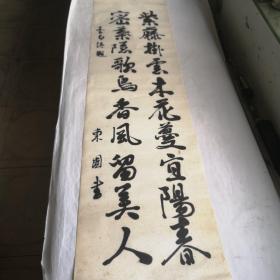 紫藤掛雲木花蔓宜陽春
密葉隱歌鳥香風留美人
東園書